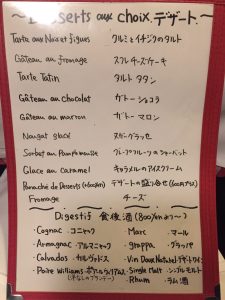 ~Desserts aux choix. デザート~
Tarte aux Noix et figues クルミとイチジクのタルト
Gâteau au fromage スフレチーズケーキ
Tarte Tatin タルト タタン
Gâteau au chocolat ガトーショコラ
Gâteau au marron ガトー マロン
Nougat glacé ヌガーグラッセ
Sorbet au Pamplemousse グレープフルーツのシャーベット
Glace au caramel キャラメルのアイスクリーム
Panaché de Desserts (+600yen) デザートの盛り合せ(600円プラス)
Fromage チーズ
~Digestif 食後酒 (800yenより~)
・Cognac コニャック ・Marc マール
・Armagnac アルマニャック ・grappa グラッパ
・Calvados カルヴァドス ・Vin Doux Naturel
・Poire Williams ・Single Molt シングルモルト
(洋なしのブランデー) ・Rhum ラム酒